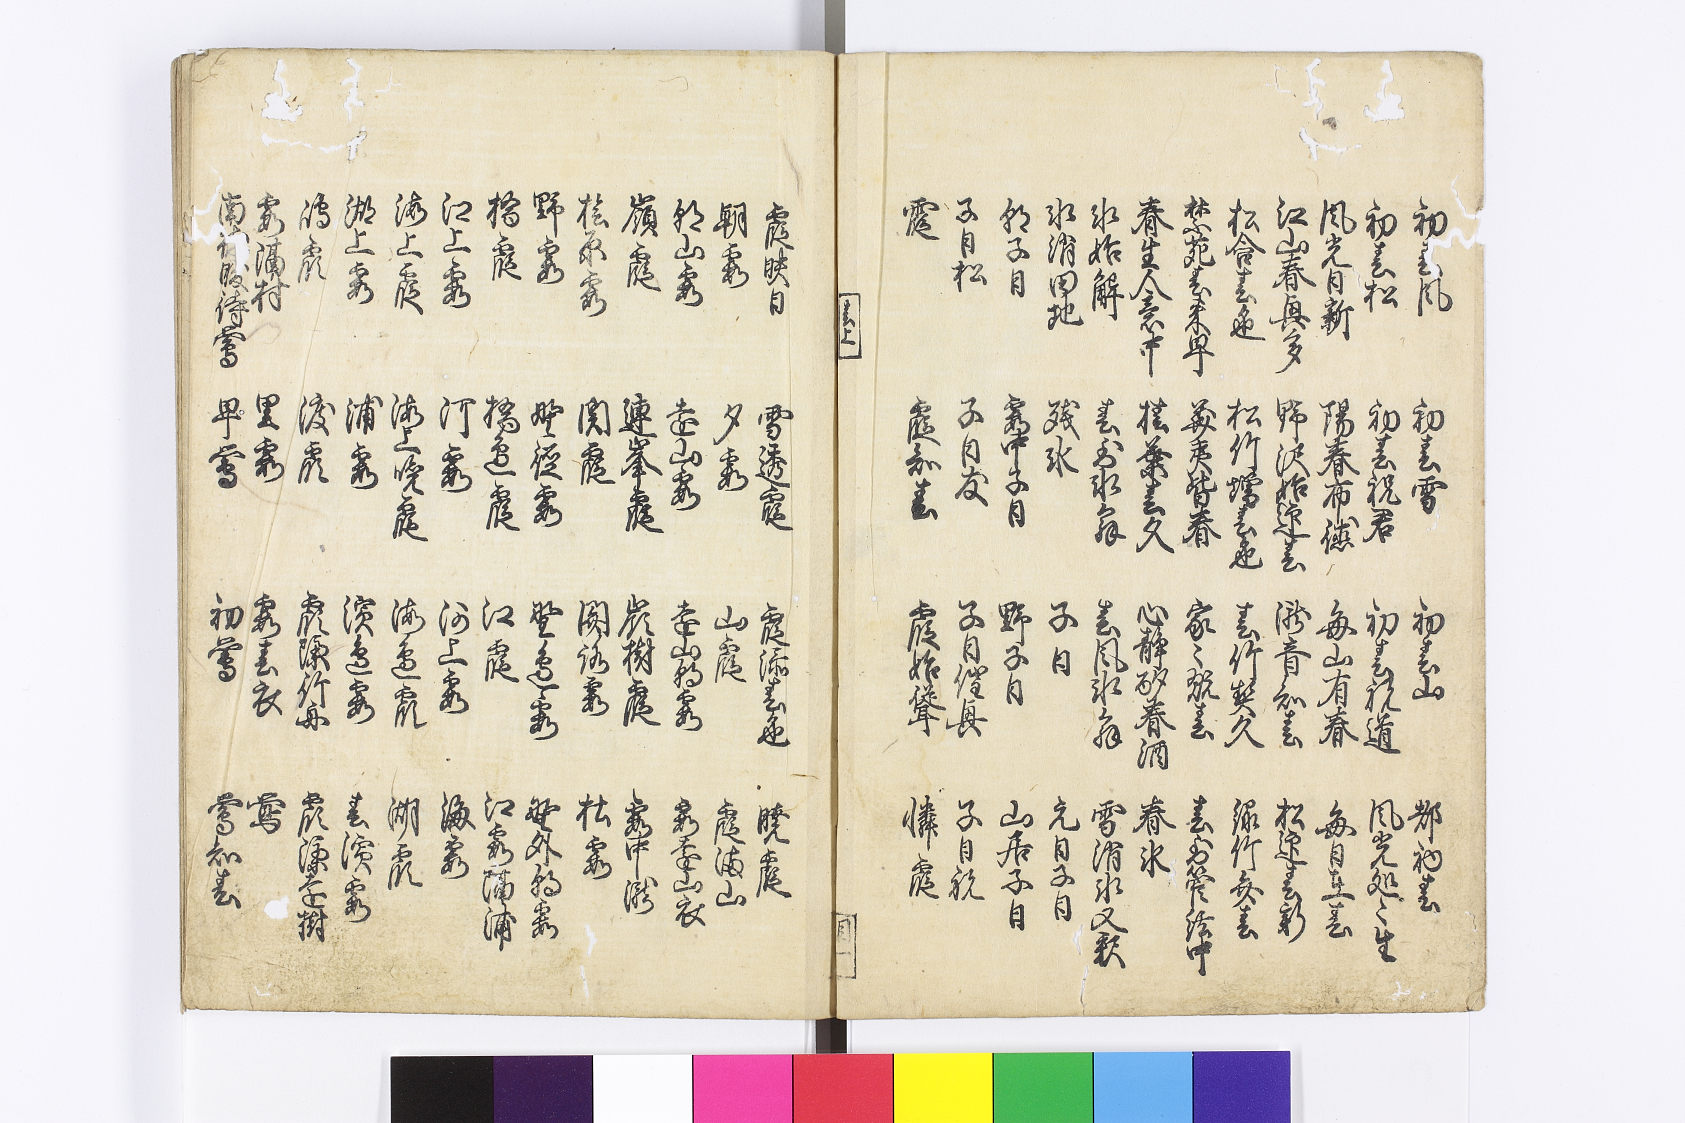 初春風 初春雪 初春山 都初春
初春松 初春祝君 初春祝道 風光処々生
風光日新 陽春布徳 毎山有春 毎日立春
江山春興多 野沢始逢春 滝音知春 松迎春新
松含春色 松竹増春色 春竹契久 緑竹知春
禁苑春来早 華夷皆春 家々翫春 春到管絃中
春生人意中 椿葉春久 心静酌春酒 春氷
氷始解 春到氷解 春風氷解 雪消氷又釈
氷消田地 残氷 子日 元日子日
朝子日 霞中子日 野子日 山居子日
子日松 子日友 子日催興 子日祝
霞 霞知春 霞始聳 憐霞
春上
目一
霞映日 雪透霞 霞添春色 暁霞
朝霞 夕霞 山霞 霞満山
朝山霞 遠山霞 遠山朝霞 霞遠山衣
嶺霞 連峯霞 嶺樹霞 霞中滝
桧原霞 関霞 関路霞 杜霞
野霞 野径霞 野辺霞 野外朝霞
橋霞 橋辺霞 江霞 江霞隔浦
江上霞 河霞 河上霞 海霞
海上霞 海上晩霞 海辺霞 湖霞
湖上霞 浦霞 浜辺霞 春浜霞
嶋霞 渡霞 霞隔行舟 霞隔遠樹
霞隔村 里霞 霞春衣 鶯
南枝暖待鶯 早鶯 初鶯 鶯知春